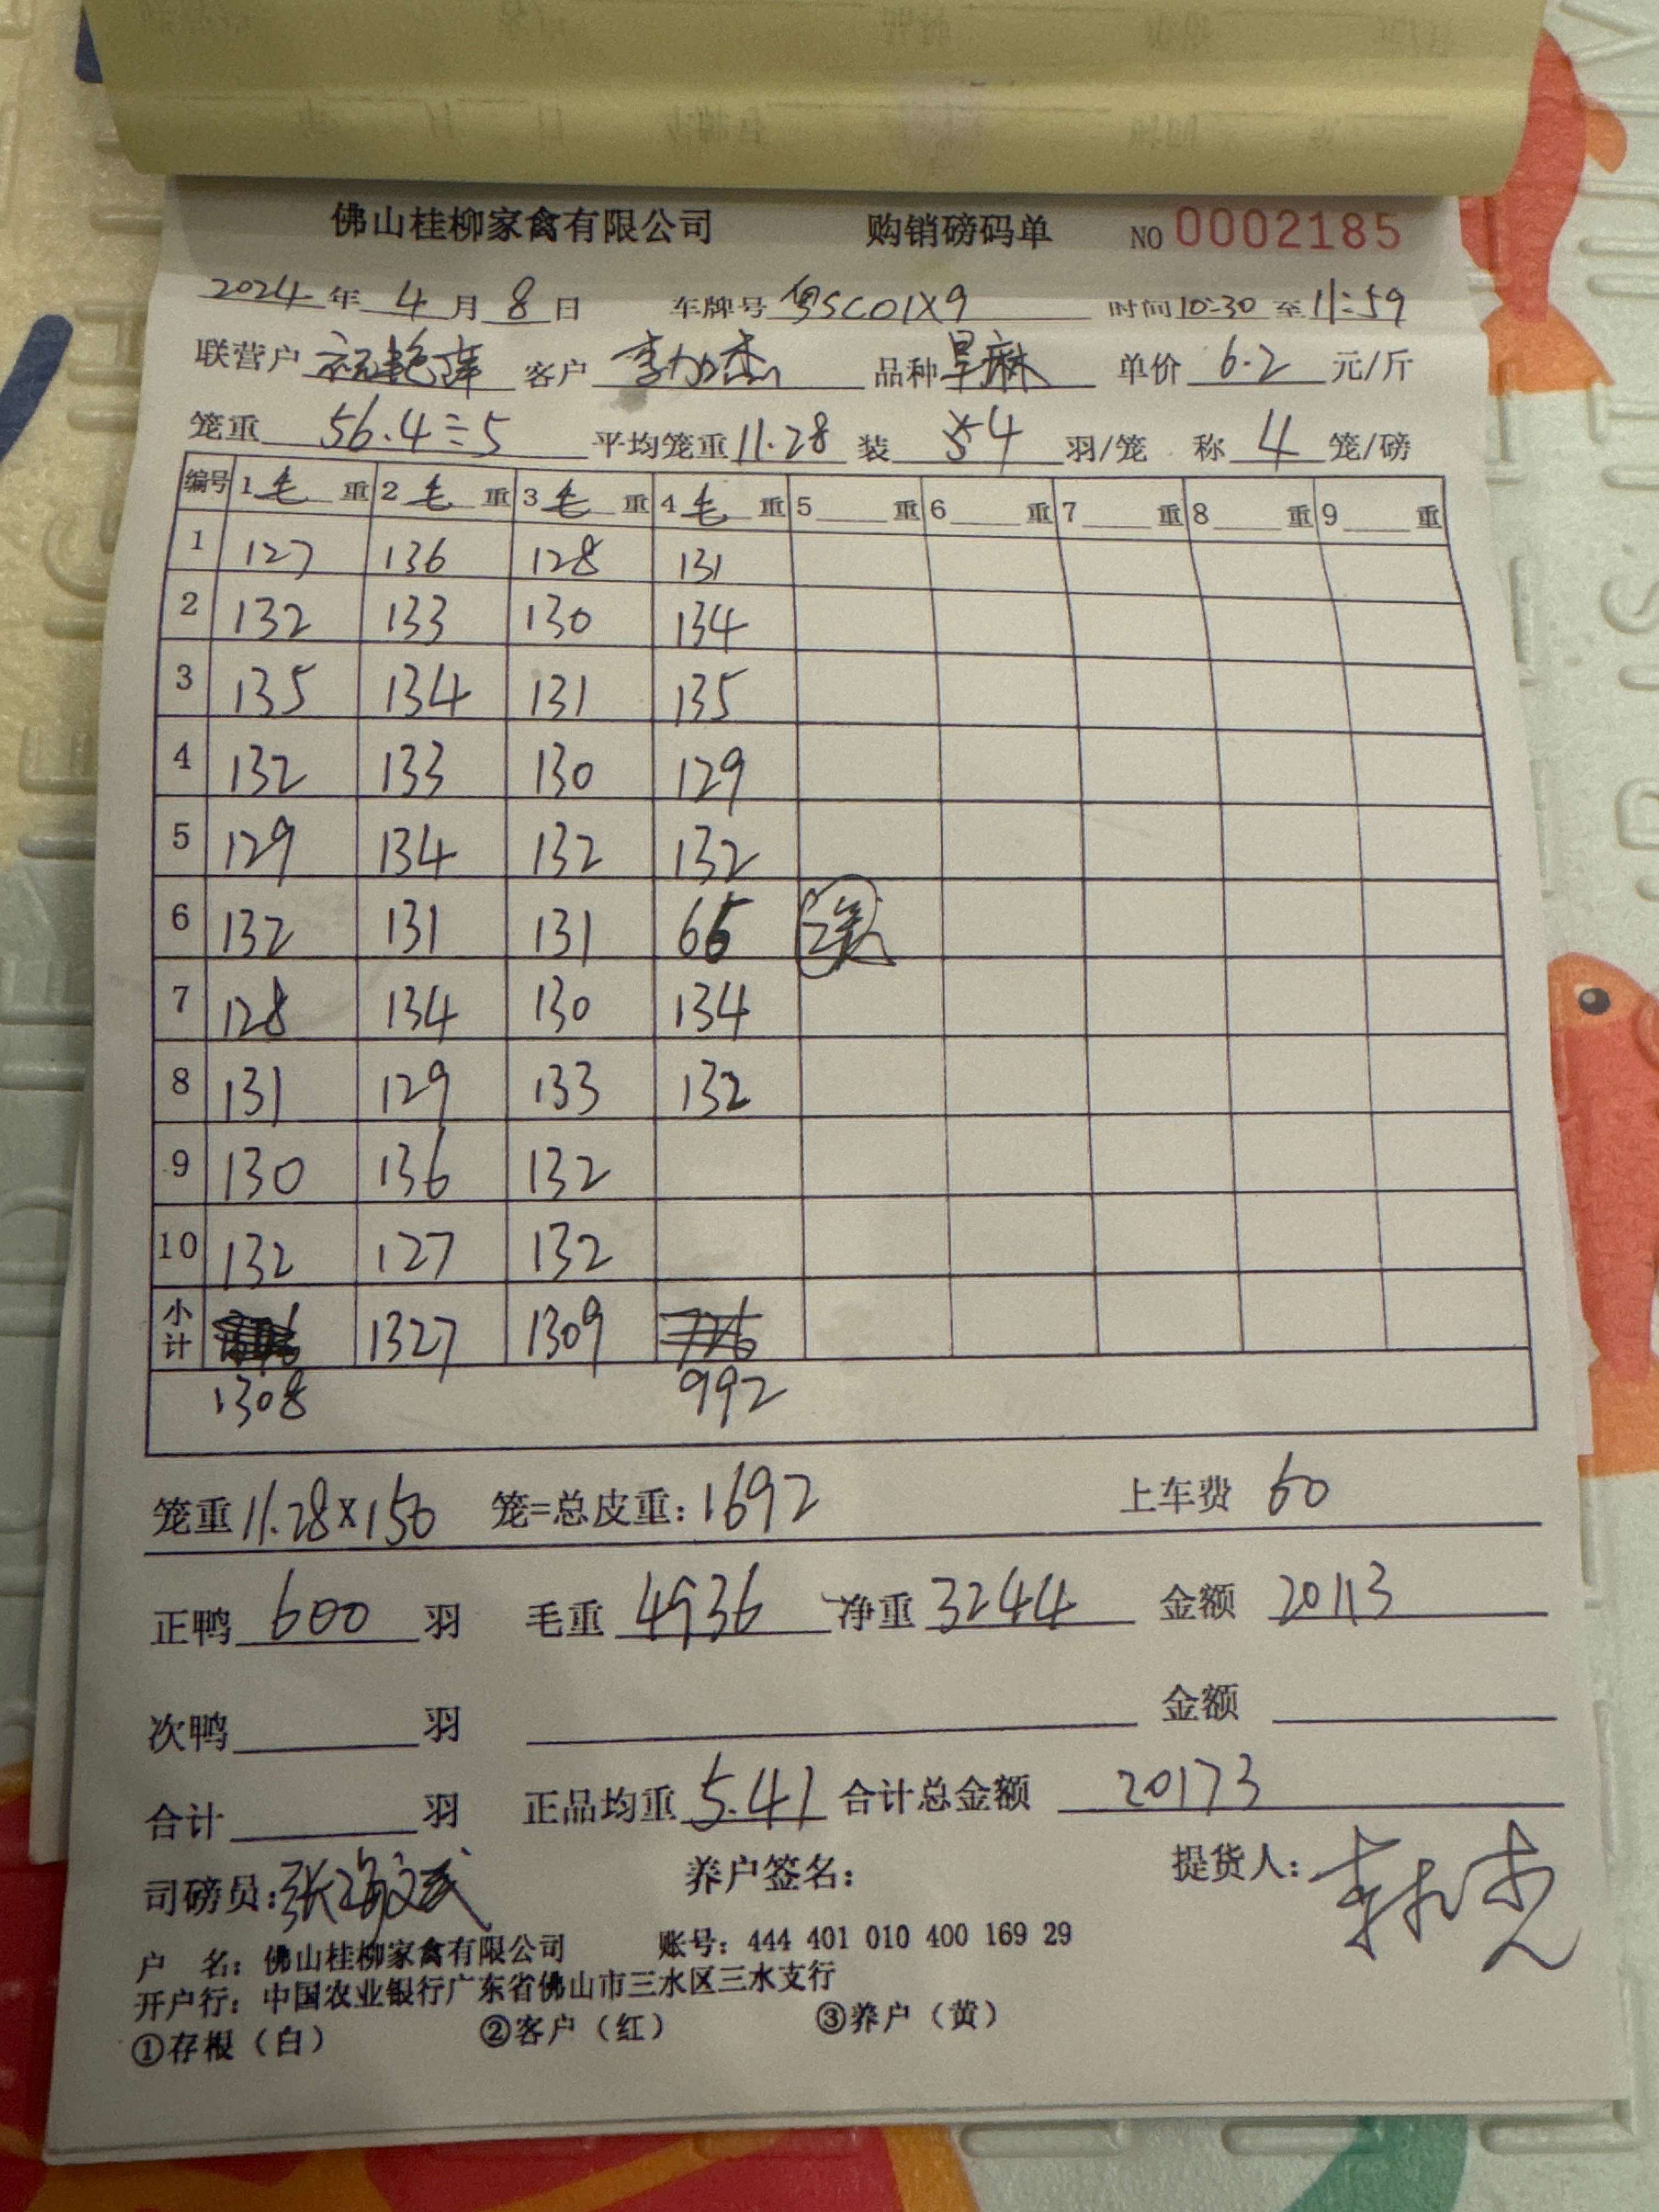 佛山桂柳家禽有限公司 购销磅码单 NO 0002185
2024年4月8日 车牌号 粤SC01X9 时间10:30至11:59
联营户 客户 李加杰 品种旱麻 单价 6.2 元/斤
笼重 56.4÷5 平均笼重11.28 装 4 羽/笼 称 4 笼/磅
编号 1毛重 2毛重 3毛重 4毛重 5 重 6 重 7 重 8 重 9 重
1 127 136 128 131
2 132 133 130 134
3 135 134 131 135
4 132 133 130 129
5 129 134 132 132
6 132 131 131 66
7 128 134 130 134
8 131 129 133 132
9 130 136 132
10 132 127 132
小计 1327 1309
1308 992
笼重11.28×150 笼=总皮重:1692 上车费 60
正鸭 600 羽 毛重 4936 净重 3244 金额 20113
次鸭 羽 金额
合计 羽 正品均重 5.41 合计总金额 20173
司磅员: 养户签名: 提货人:李加杰
户 名: 佛山桂柳家禽有限公司 账号: 444 401 010 400 169 29
开户行: 中国农业银行广东省佛山市三水区三水支行
①存根(白) ②客户(红) ③养户(黄)